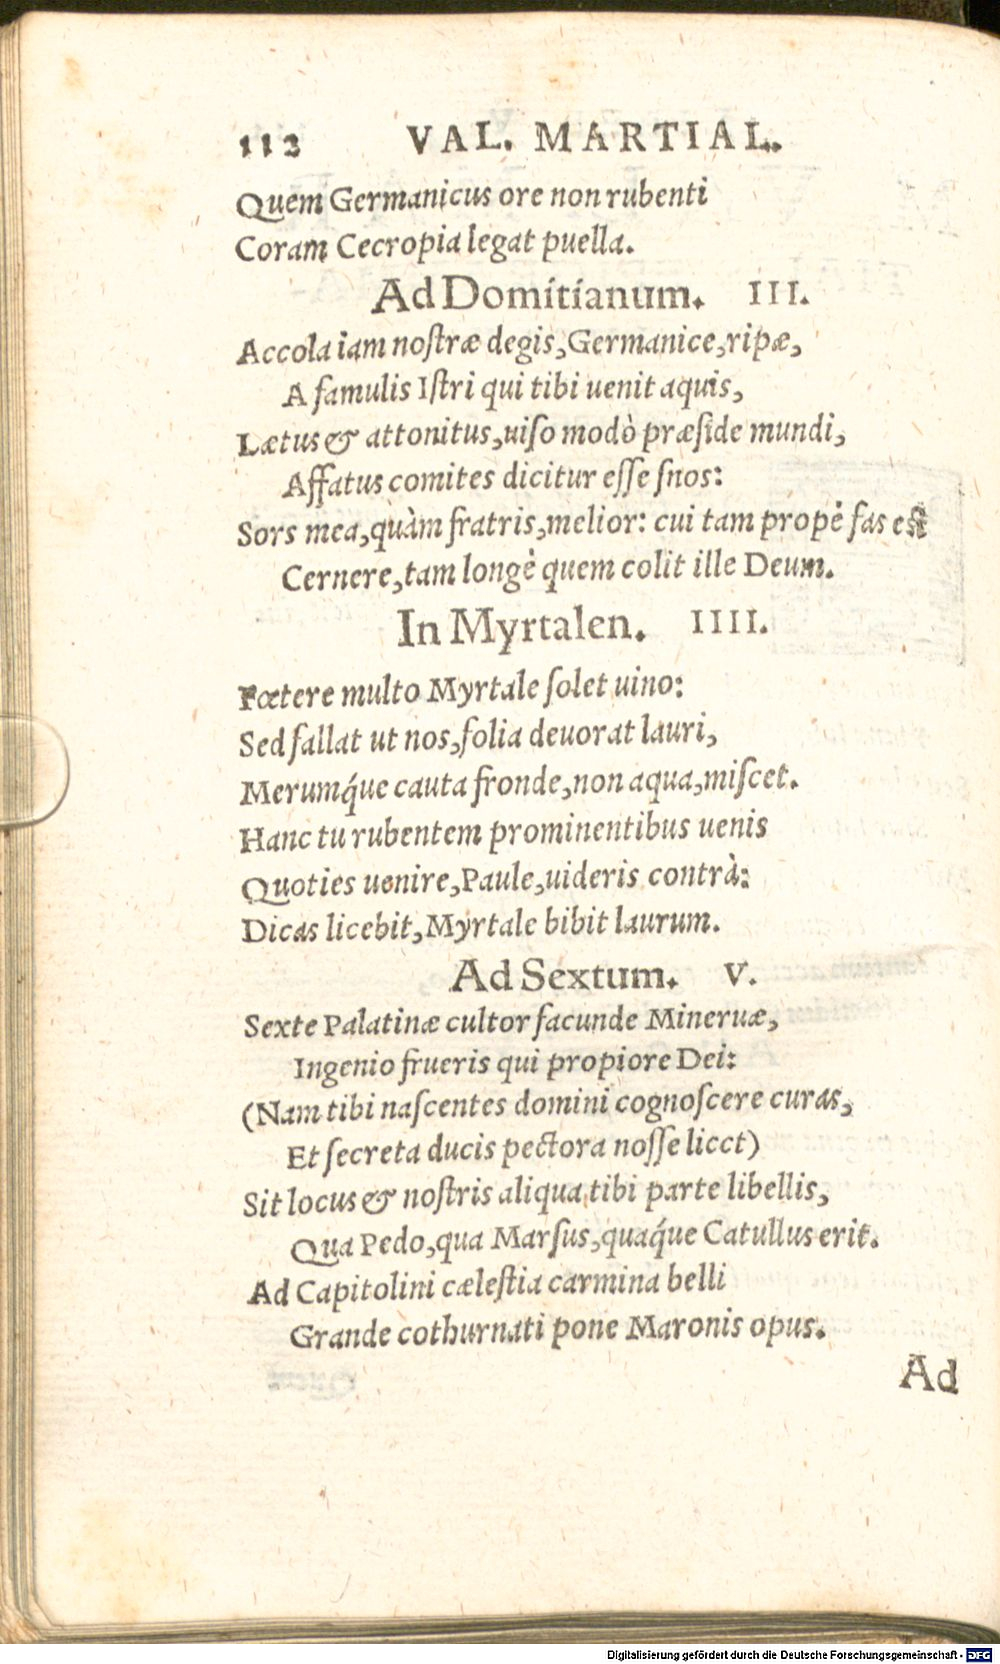 112 VAL. MARTIAL.
Quem Germanicus ore non rubenti
Coram Cecropia legat puella.
Ad Domitianum. III.
Accola iam nostræ degis, Germanice, ripæ,
A famulis Istri qui tibi uenit aquis,
Lætus & attonitus, uiso modò præside mundi,
Affatus comites dicitur esse snos:
Sors mea, quàm fratris, melior: cui tam propè fas est
Cernere, tam longè quem colit ille Deum.
In Myrtalen. IIII.
Fœtere multo Myrtale solet uino:
Sed fallat ut nos, folia deuorat lauri,
Merumq́ue cauta fronde, non aqua, miscet.
Hanc tu rubentem prominentibus uenis
Quoties uenire, Paule, uideris contrà:
Dicas licebit, Myrtale bibit laurum.
Ad Sextum. V.
Sexte Palatinæ cultor facunde Mineruæ,
Ingenio frueris qui propiore Dei:
(Nam tibi nascentes domini cognoscere curas,
Et secreta ducis pectora nosse licct)
Sit locus & nostris aliqua tibi parte libellis,
Qua Pedo, qua Marsus, quaq́ue Catullus erit.
Ad Capitolini cælestia carmina belli
Grande cothurnati pone Maronis opus.
Ad
Digitalisierung gefördert durch die Deutsche Forschungsgemeinschaft - DFG